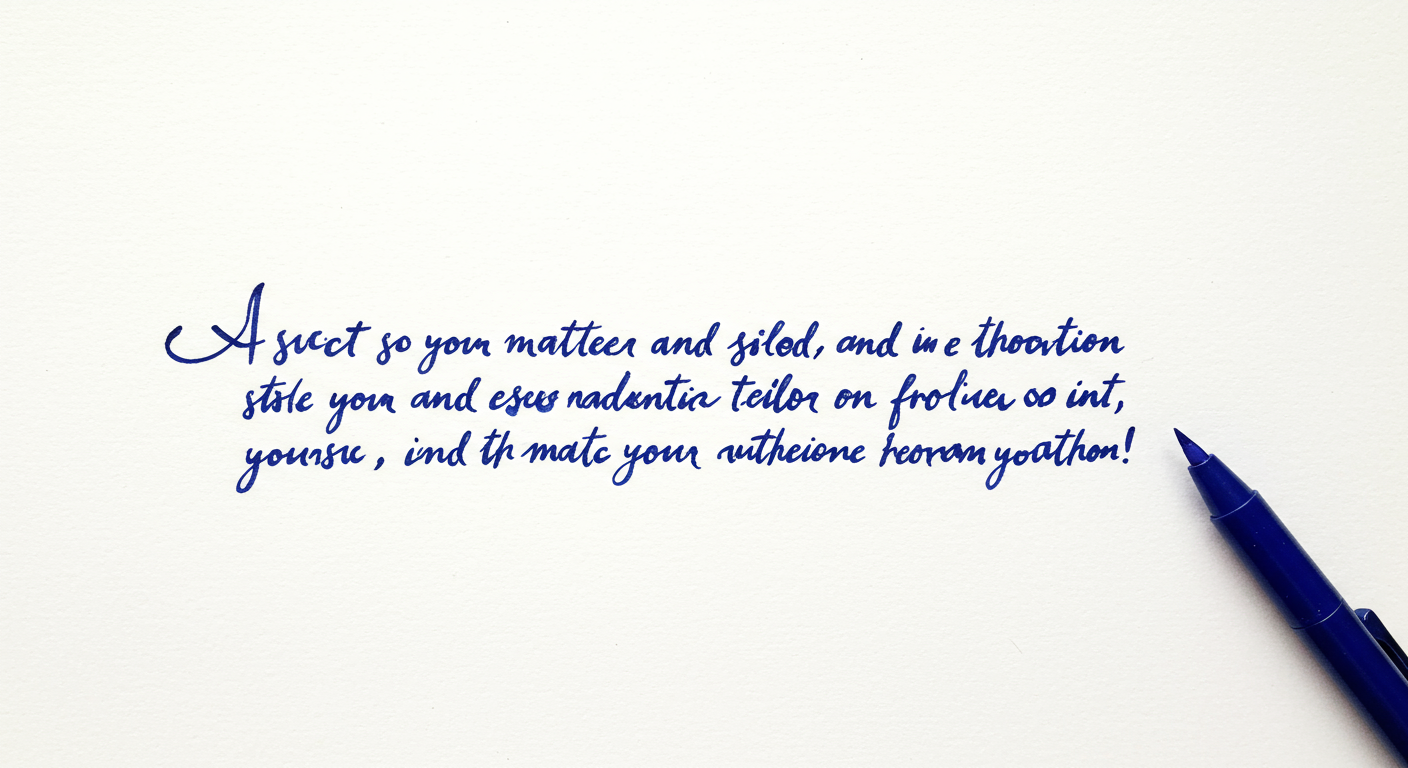 A suct so your matteer and silod, and in e thoortion
stsle your and esus nadentir teilor on froliuer oo int,
yoursu, ind th matc your utheione heoram yoathon!